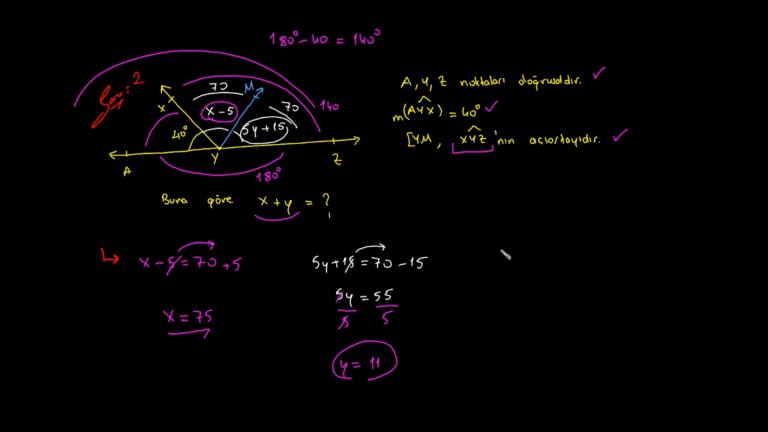 180° - 40 = 140°
Soru: 2
A, Y, Z noktaları doğrusaldır. ✓
m(AŶX) = 40° ✓
[YM, XŶZ'nin açıortayıdır. ✓
70
M
70
140
X
x-5
40°
5y+15
A
Y
Z
180°
Buna göre x+y = ?
x - 5 = 70 + 5
5y + 15 = 70 - 15
x = 75
5y = 55
5 5
y = 11